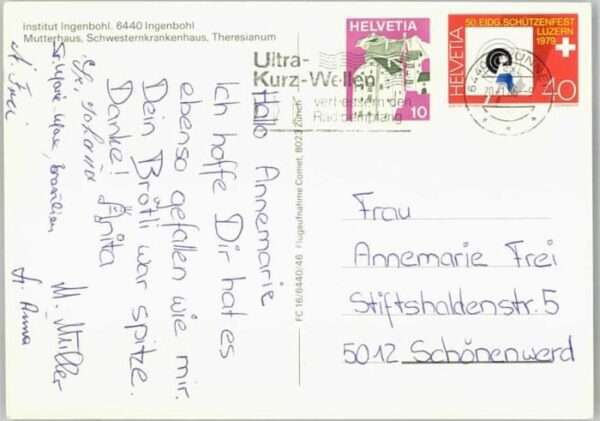 Institut Ingenbohl, 6440 Ingenbohl
Mutterhaus, Schwesternkrankenhaus, Theresianum
Hallo Annemarie
Ich hoffe Dir hat es
ebenso gefallen wie mir.
Dein Brötli war spitze.
Danke! Anita
Sr. Marie Max, Brasilien
A. Frei
M. Müller
Sr. Anna
FC 16/6440/46 Flugaufnahme Comet, 8023 Zürich
Ultra-
Kurz-Wellen
verbessern den
Radioempfang
HELVETIA
10
50. EIDG. SCHÜTZENFEST
LUZERN
1979
HELVETIA
40
6440
Frau
Annemarie Frei
Stiftshaldenstr. 5
5012 Schönenwerd